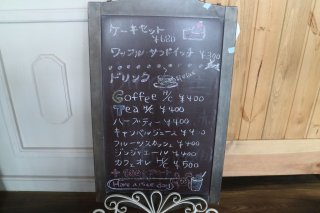 ケーキセット
¥680
ワッフル サンドイッチ ¥300
ドリンク
Coffee H/C ¥400
Tea H/C ¥400
ハーブティー ¥400
キャンベルジュース ¥400
フルーツスカッシュ ¥400
ジンジャエール ¥400
カフェオレ H/C ¥500
Have a nice day!